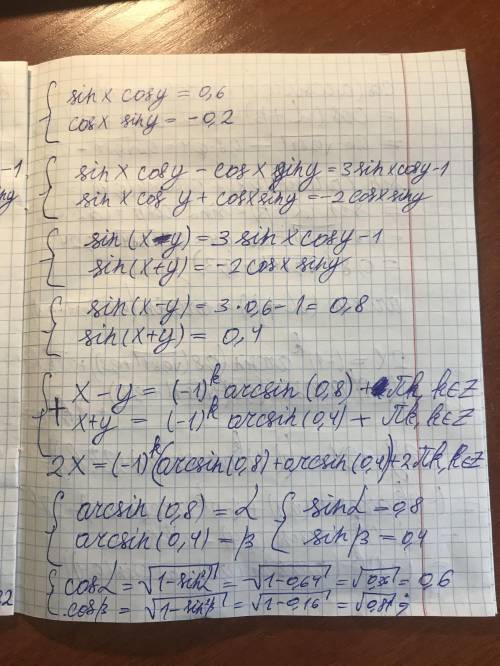 sinx cosy = 0,6
cosx siny = -0,2
sinx cosy - cosx siny = 3sinxcosy-1
sinx cosy + cosxsiny = -2cosxsiny
sin(x-y) = 3 sinxcosy-1
sin(x+y) = -2cosx siny
sin(x-y) = 3·0,6-1 = 0,8
sin(x+y) = 0,4
+ x-y = (-1)^k arcsin(0,8) + πk, k∈Z
x+y = (-1)^k arcsin(0,4) + πk, k∈Z
2x = (-1)^k(arcsin(0,8)+arcsin(0,4))+2πk, k∈Z
arcsin(0,8) = α { sinα = 0,8
arcsin(0,4) = β { sinβ = 0,4
cosα = √1-sin²α = √1-0,64 = √0,36 = 0,6
cosβ = √1-sin²β = √1-0,16 = √0,84